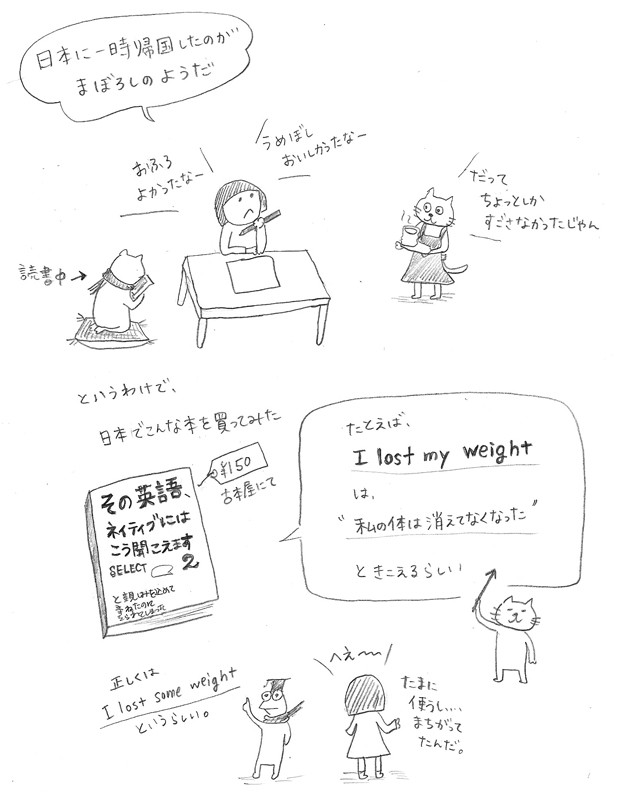 日本に一時帰国したのが
まぼろしのようだ
おふろ
よかったなー
うめぼし
おいしかったなー
だって
ちょっとしか
すごさなかったじゃん
読書中→
というわけで、
日本でこんな本を買ってみた
¥150
古本屋にて
その英語、
ネイティブには
こう聞こえます
SELECT 2
たとえば、
I lost my weight
は、
"私の体は消えてなくなった"
ときこえるらしい
正しくは
I lost some weight
というらしい。
へぇ〜
たまに
使うし....
まちがって
たんだ。